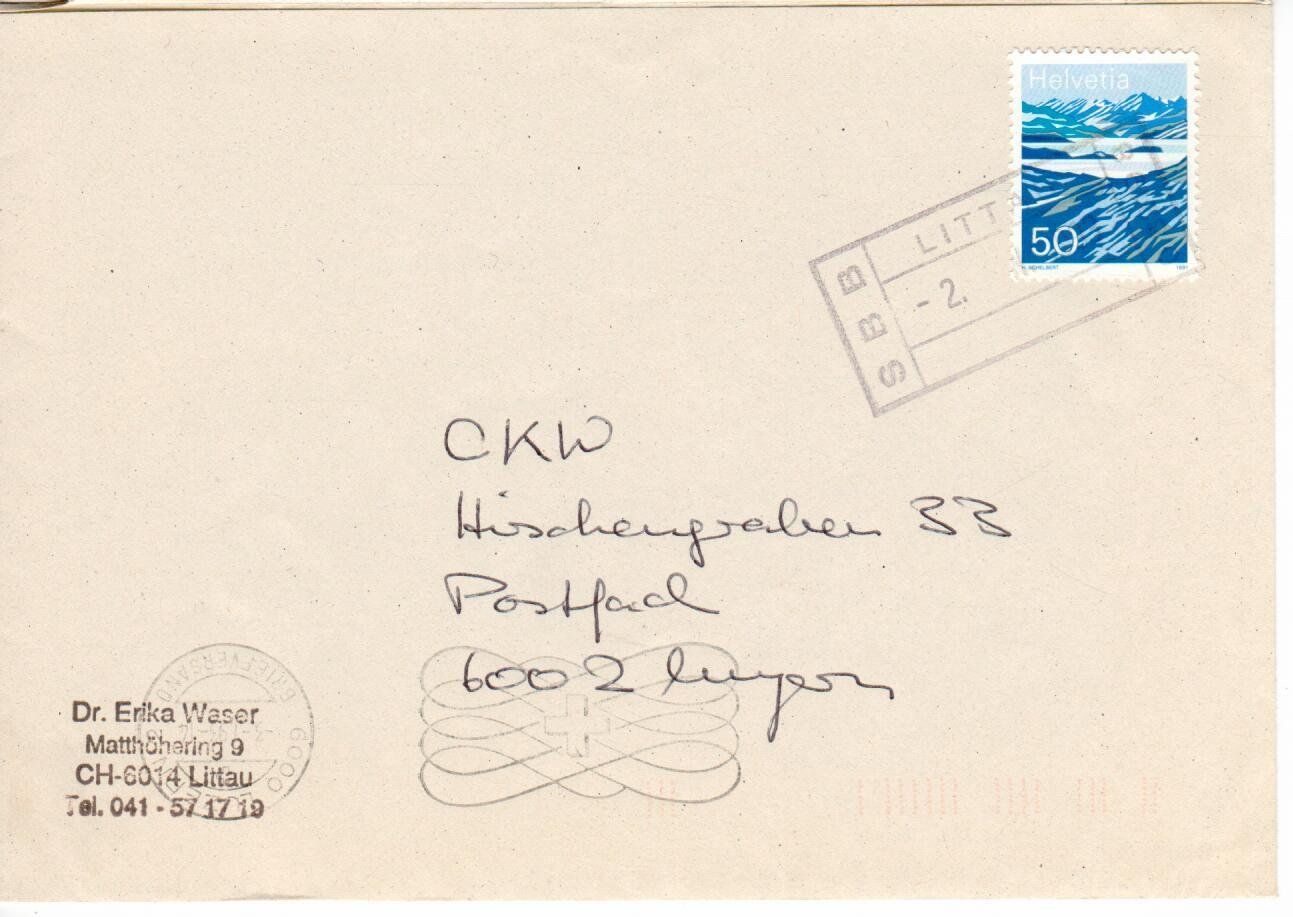 Helvetia
50
H. SCHELBERT 1991
SBB
LITTA
- 2.
CKW
Hirschengraben 33
Postfach
6002 Luzern
BRIEFVERSAND
6000
Dr. Erika Waser
Matthöhering 9
CH-6014 Littau
Tel. 041 - 57 17 19